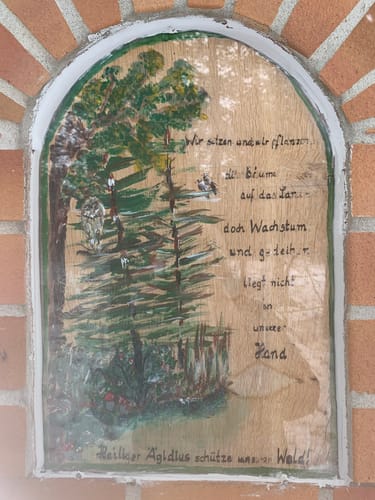 Wir setzen und wir pflanzen
die Bäume
auf das Land
doch Wachstum
und gedeihen
liegt nicht
in
unserer
Hand
Heiliger Ägidius schütze unseren Wald!